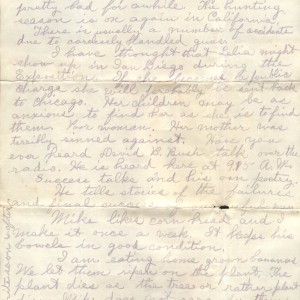 pretty bad for awhile. The hunting
season is on again in California.
There is usually a number of accidents
due to carelessly handled guns.
I have thought that Lelia might
show up in San Diego during the
Exposition. If she becomes a public
charge she will probably be sent back
to Chicago. Her children may be as
anxious to find her as she is to find
them. Poor woman. Her mother was
terribly sinned against. Have you
ever heard David B. Rush talk over the
radio. He is heard here at
Success talks and his own poetry.
He tells stories of the failures
and final success
Mike likes corn bread and I
make it once a week. It keeps his
bowels in good condition.
I am eating home grown bananas
We let them ripen on the plant. The
plant dies as the tree or rather plant